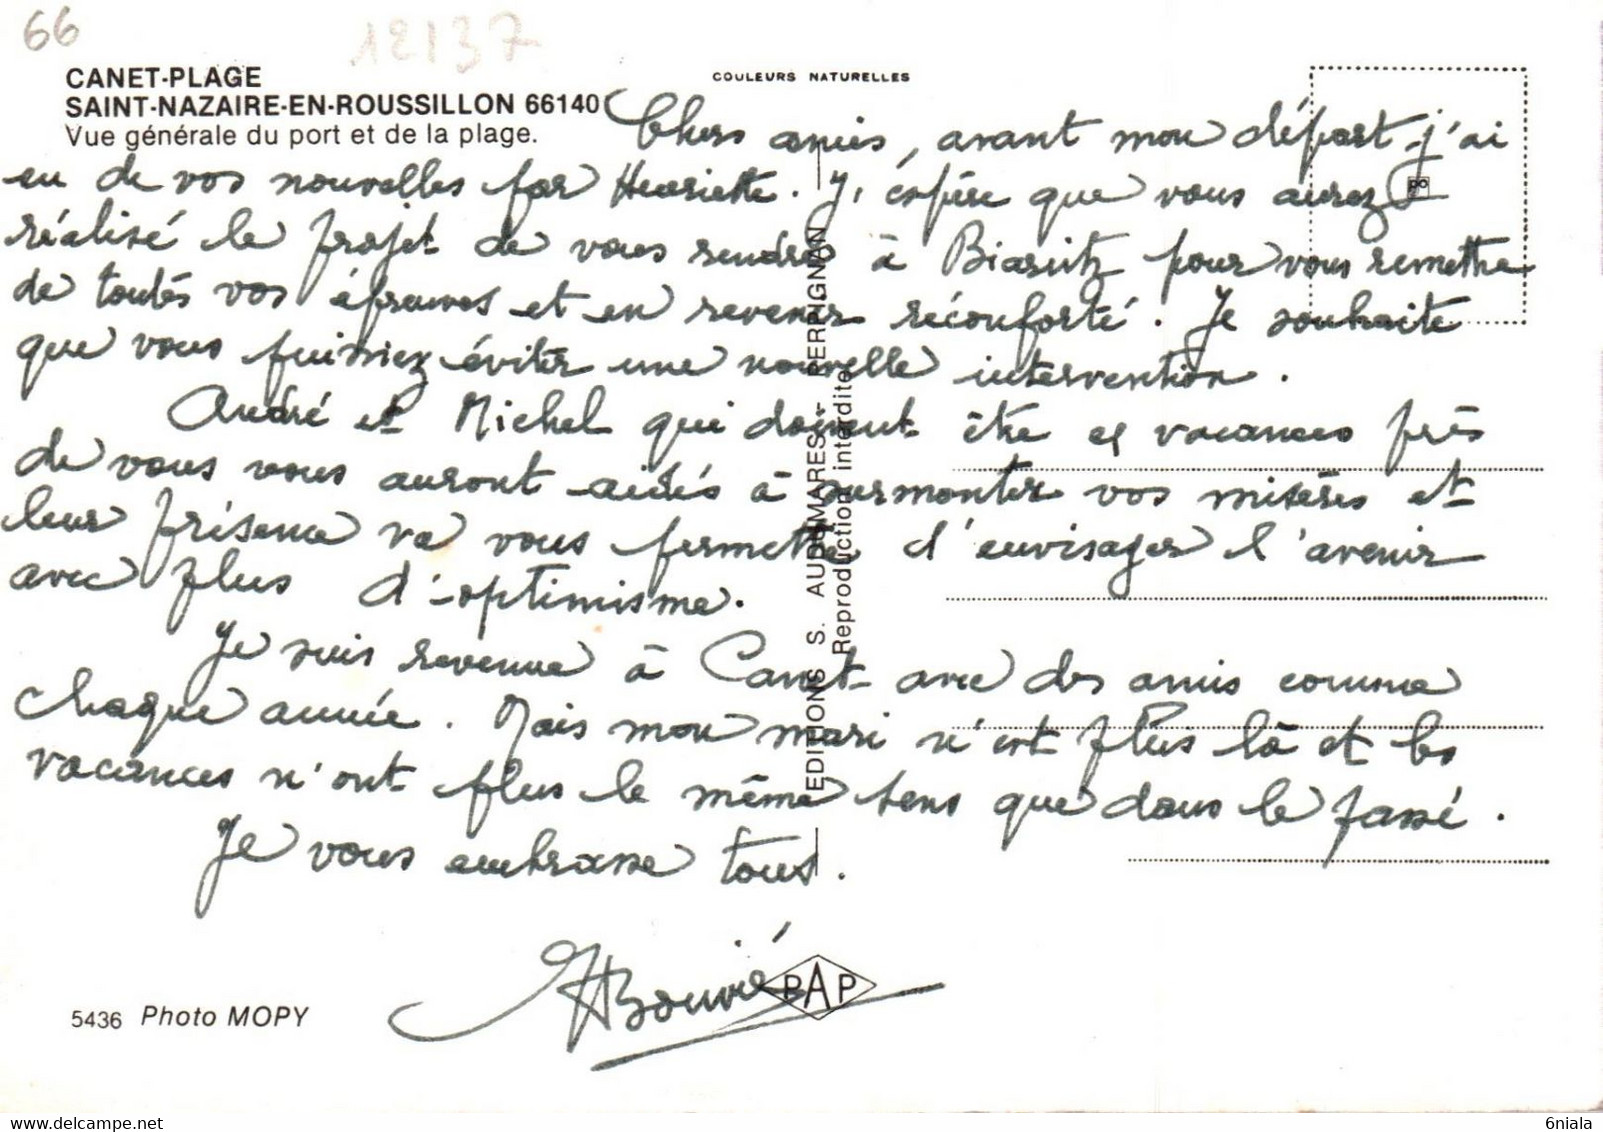 66
12137
CANET-PLAGE
SAINT-NAZAIRE-EN-ROUSSILLON 66140
Vue générale du port et de la plage.
COULEURS NATURELLES
Chers amis, avant mon départ j'ai
eu de vos nouvelles par Henriette. J'espère que vous aurez
réalisé le projet de vous rendre à Biarritz pour vous remettre
de toutes vos épreuves et en revenir réconforté. Je souhaite
que vous puissiez éviter une nouvelle intervention.
André et Michel qui doivent être en vacances près
de vous vous auront aidés à surmonter vos misères et
leur présence va vous permettre d'envisager l'avenir
avec plus d'optimisme.
Je suis revenue à Canet avec des amis comme
chaque année. Mais mon mari n'est plus là et les
vacances n'ont plus le même sens que dans le passé.
Je vous embrasse tous.
HBouvié
EDITIONS S. AUDUMARES - PERPIGNAN
Reproduction interdite
PAP
5436 Photo MOPY
6niala